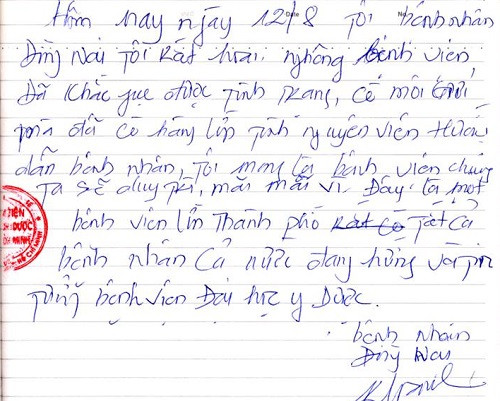 Hôm nay ngày 12/8 Tôi bệnh nhân
Đồng Nai Tôi Rất hoài nghông bệnh viện
Đã khắc fục được tình trạng, có mỗi
đã có hàng lín tình nguyện viên Hướng
dẫn bệnh nhân, Tôi mong là bệnh viện chúng
ta sẽ duy trì, mãi mãi vì. Đây là một
bệnh viện lín Thành phố Rất có Tất cả
bệnh nhân Cả nước đang hướng về
tưởng bệnh viện Đại học y Dược.
bệnh nhân
Đồng Nai